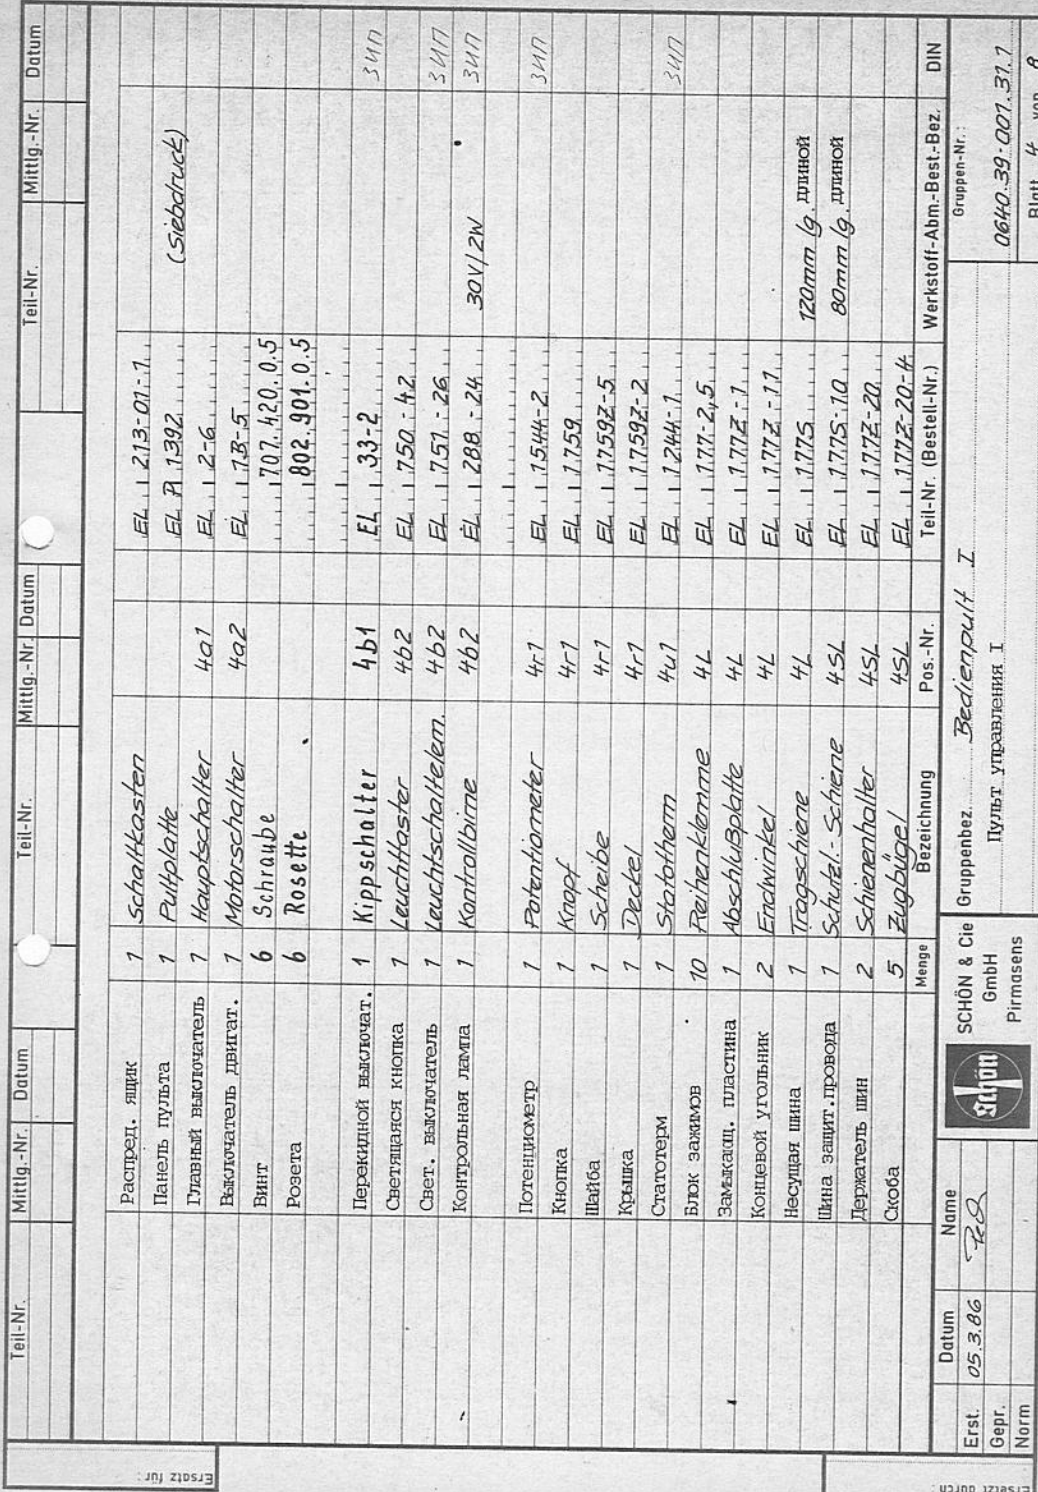 Teil-Nr. Mittlg.-Nr. Datum Teil-Nr. Mittlg.-Nr. Datum Teil-Nr. Mittlg.-Nr. Datum
Распред. ящик 1 Schaltkasten EL 1 213-01-1
Панель пульта 1 Pultplatte EL P 1392 (Siebdruck)
Главный выключатель 1 Hauptschalter 4a1 EL 1 2-6
Выключатель двигат. 1 Motorschalter 4a2 EL 1 13-5
Винт 6 Schraube 707.420.0.5
Розета 6 Rosette 802.901.0.5
Перекидной выключат. 1 Kippschalter 4b1 EL 1 33-2 ЗИП
Светящаяся кнопка 1 Leuchttaster 4b2 EL 1 750-42
Свет. выключатель 1 Leuchtschaltelem. 4b2 EL 1 751-26 ЗИП
Контрольная лампа 1 Kontrollbirne 4b2 EL 1 288-24 30V/2W ЗИП
Потенциометр 1 Potentiometer 4r1 EL 1 1544-2 ЗИП
Кнопка 1 Knopf 4r1 EL 1 1759
Шайба 1 Scheibe 4r1 EL 1 1759Z-5
Крышка 1 Deckel 4r1 EL 1 1759Z-2
Статотерм 1 Statotherm 4u1 EL 1 1244-1 ЗИП
Блок зажимов 10 Reihenklemme 4L EL 1 177-2,5
Замыкающ. пластина 1 Abschlußplatte 4L EL 1 177Z-1
Концевой угольник 2 Endwinkel 4L EL 1 177Z-11
Несущая шина 1 Tragschiene 4L EL 1 177S 120mm lg. длиной
Шина защит.провода 1 Schutzl.-Schiene 4SL EL 1 177S-10 80mm lg. длиной
Держатель шин 2 Schienenhalter 4SL EL 1 177Z-20
Скоба 5 Zugbügel 4SL EL 1 177Z-20-4
Menge Bezeichnung Pos.-Nr. Teil-Nr. (Bestell-Nr.) Werkstoff-Abm.-Best.-Bez. DIN
Datum Name
Erst. 05.3.86
Gepr.
Norm
Schön
SCHÖN & Cie
GmbH
Pirmasens
Gruppenbez. Bedienpult I
Пульт управления I
Gruppen-Nr.:
0640.39-001.31.1
Blatt 4 von 8
Ersatz für:
Ersetzt durch: